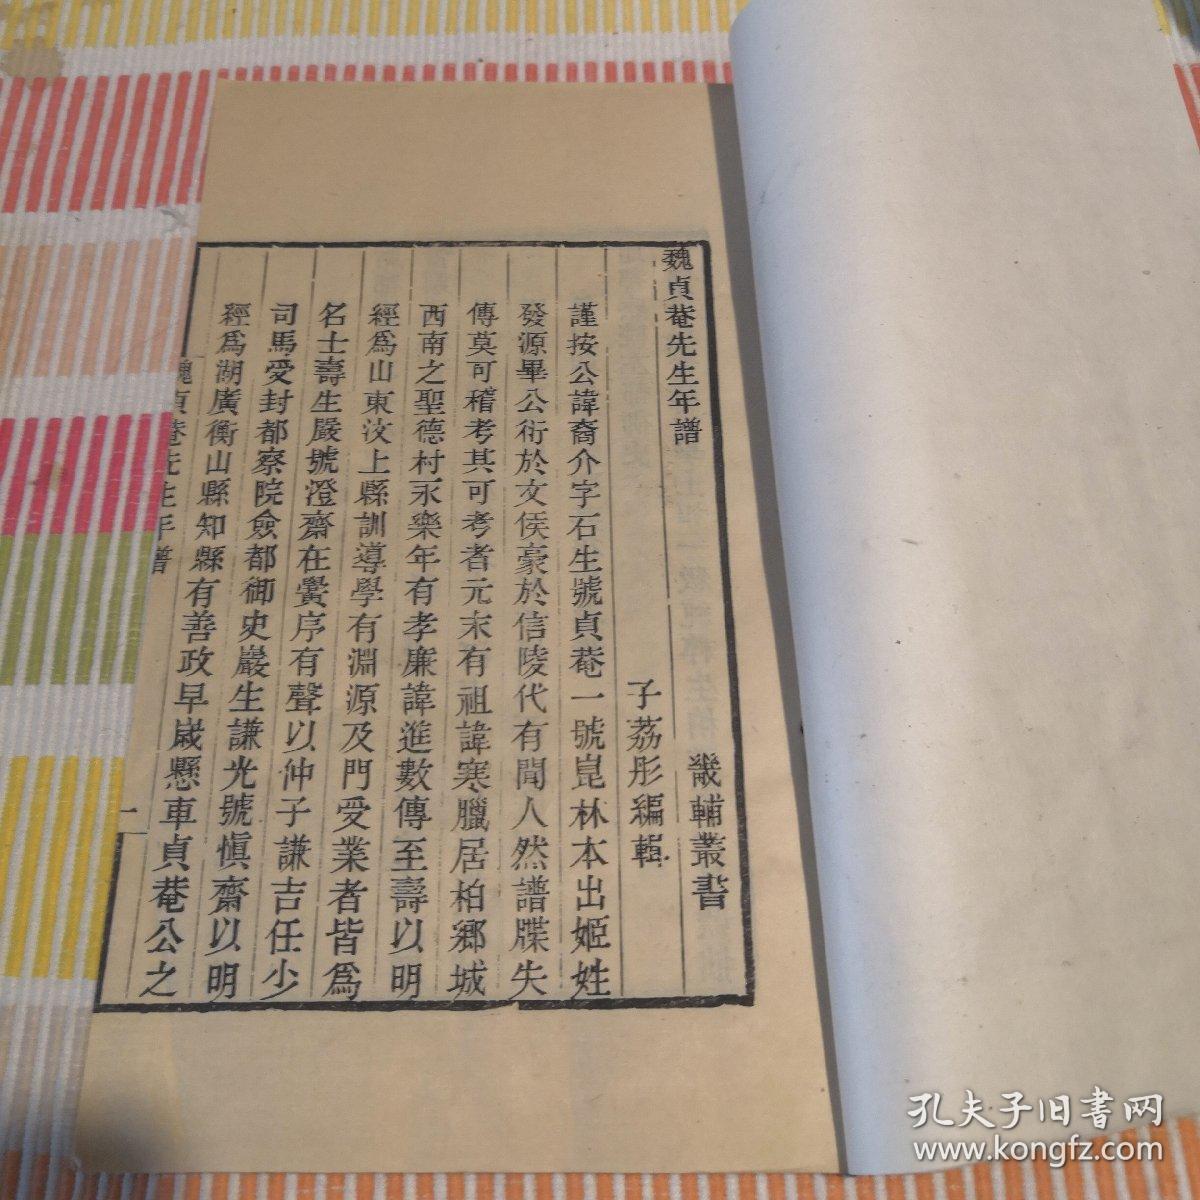 魏貞菴先生年譜
畿輔叢書
子荔彤編輯
謹按公諱裔介字石生號貞菴一號崑林本出姬姓
發源畢公衍於文侯豪於信陵代有聞人然譜牒失
傳莫可稽考其可考者元末有祖諱寒臘居柏鄉城
西南之聖德村永樂年有孝廉諱進數傳至壽以明
經爲山東汶上縣訓導學有淵源及門受業者皆爲
名士壽生嚴號澄齋在黌序有聲以仲子謙吉任少
司馬受封都察院僉都御史巖生謙光號愼齋以明
經爲湖廣衡山縣知縣有善政早歲懸車貞菴公之
魏貞菴先生年譜
一
孔夫子旧书网
www.kongfz.com